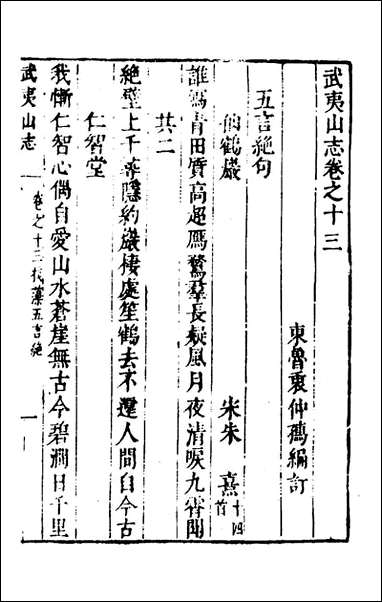 武夷山志卷之十三
東魯衷仲孺編訂
五言絕句
仙鶴巖 宋朱 熹 十四首
誰寫青田質高超鴈鶩羣長疑風月夜清唳九霄聞
共二
絕壁上千尋隱約巖棲處笙鶴去不還人間自今古
仁智堂
我慚仁智心偶自愛山水蒼崖無古今碧澗日千里
武夷山志 卷之十三 藻五言絕 一